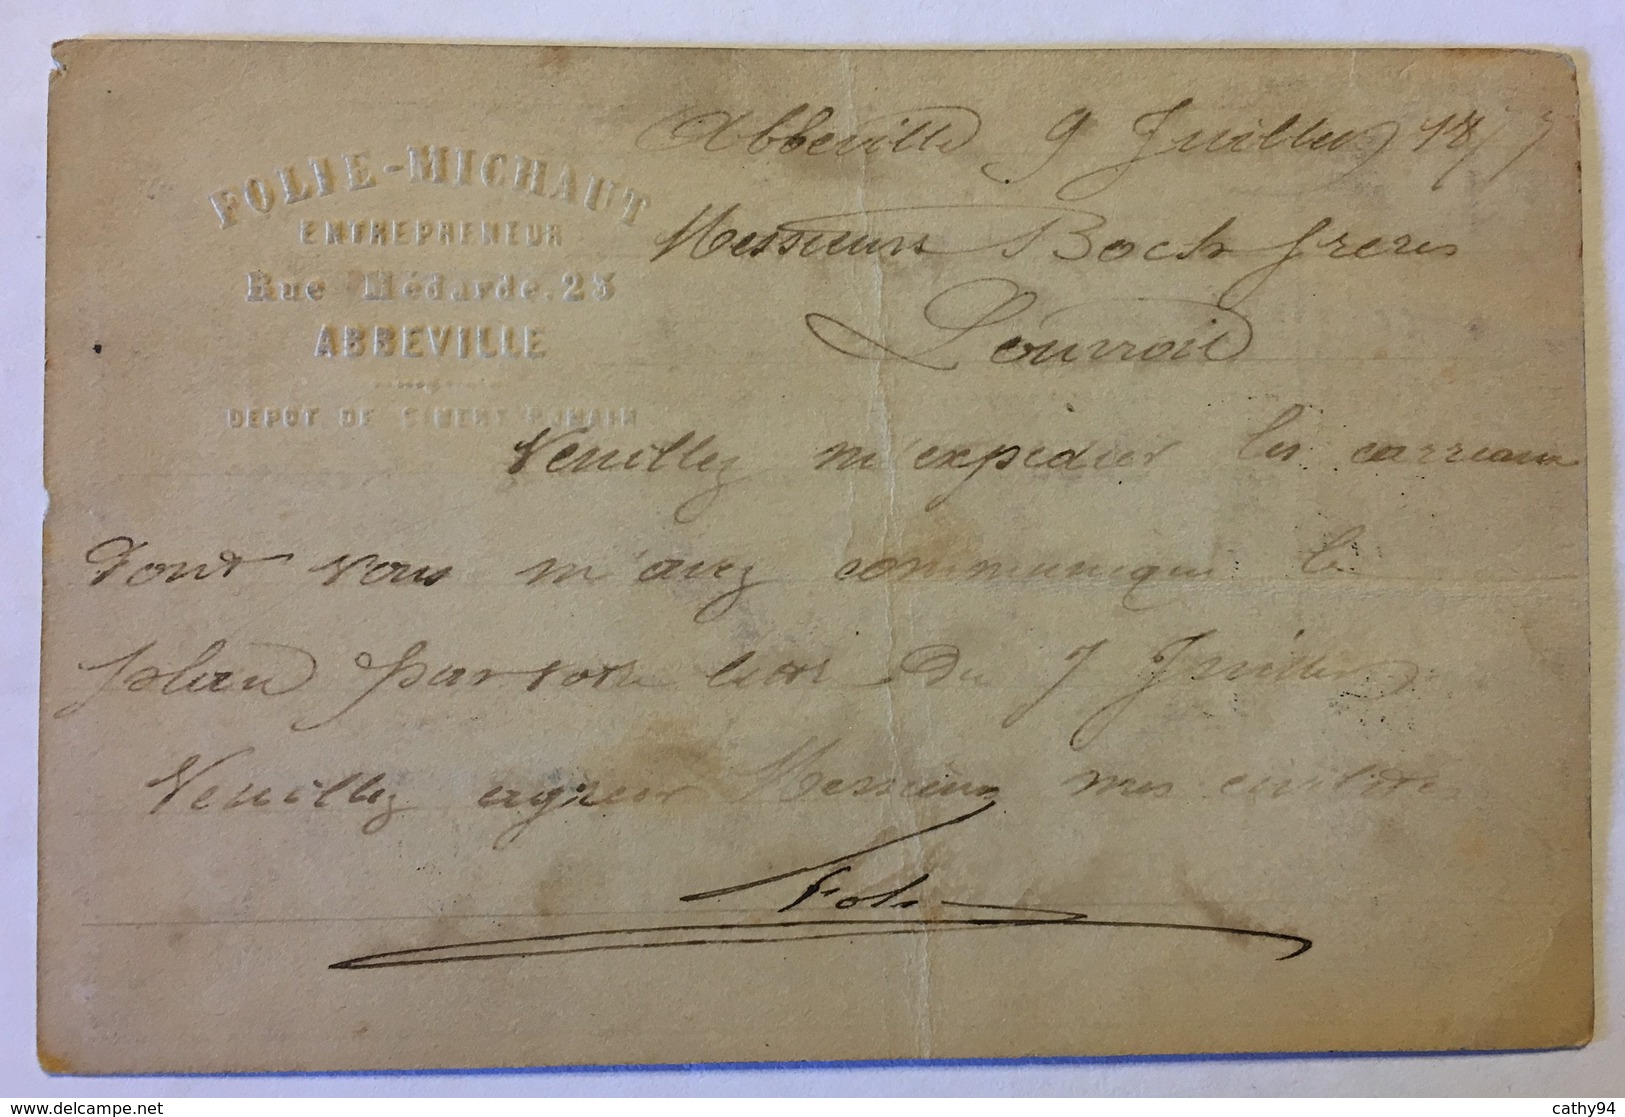 FOLIE-MICHAUT
ENTREPRENEUR
Rue Médarde. 23
ABBEVILLE
DEPOT DE CIMENT ROMAIN
Abbeville 9 Juillet 1877
Messieurs Boch freres
Louvroil
Veuillez m'expédier les carreaux
dont vous m'avez communiqué le
plan par votre lettre du 7 Juillet
Veuillez agréer Messieurs mes civilités
Folie
delcampe.net
cathy94